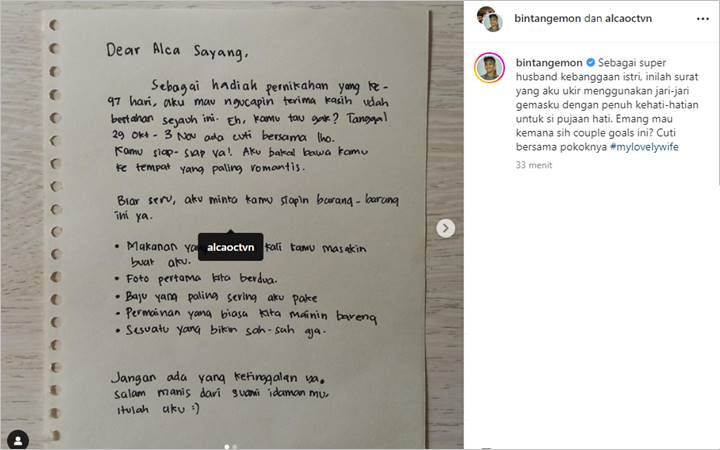 Dear Alca Sayang,
Sebagai hadiah pernikahan yang ke-
97 hari, aku mau ngucapin terima kasih udah
bertahan sejauh ini. Eh, kamu tau gak? Tanggal
29 Okt - 3 Nov ada cuti bersama lho.
Kamu siap-siap ya! Aku bakal bawa kamu
ke tempat yang paling romantis.
Biar seru, aku minta kamu siapin barang-barang
ini ya.
alcaoctvn
• Makanan kali kamu masakin
buat aku.
• Foto pertama kita berdua.
• Baju yang paling sering aku pake
• Permainan yang biasa kita mainin bareng
• Sesuatu yang bikin sah-sah aja.
Jangan ada yang ketinggalan ya.
Salam manis dari suami idamanmu.
itulah aku :)
bintangemon dan alcaoctvn
bintangemon Sebagai super
husband kebanggaan istri, inilah surat
yang aku ukir menggunakan jari-jari
gemasku dengan penuh kehati-hatian
untuk si pujaan hati. Emang mau
kemana sih couple goals ini? Cuti
bersama pokoknya #mylovelywife
33 menit